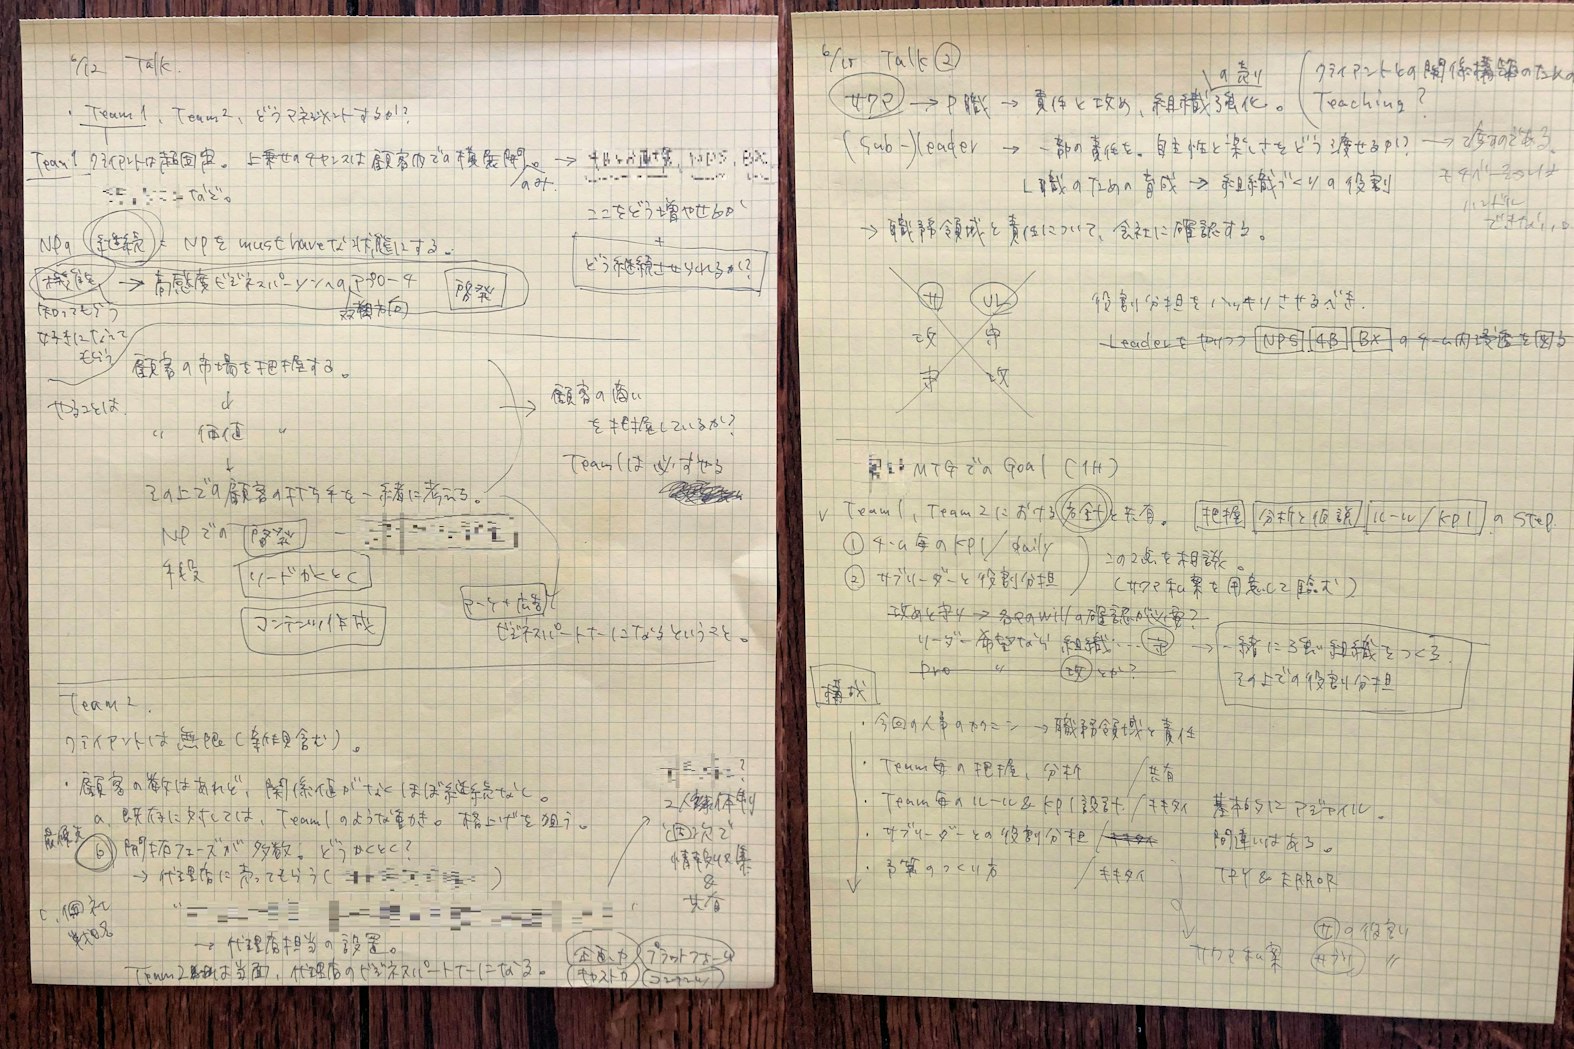 6/12 Talk.
・Team1、Team2、どうマネジメントするか?
Team1 クライアントは超固定。上乗せのチャンスは顧客内での横展開のみ。→
など。
ここをどう増やせるか
+
どう継続させられるか?
NPの 継続 = NPをmust haveな状態にする。
機能 → 高感度ビジネスパーソンへのアプローチ 啓発
双方向
知ってもらう
好きになってもらう
やることは、
顧客の市場を把握する。
↓
〃 価値 〃
↓
その上での顧客の打ち手を一緒に考える。
→ 顧客の商い
を把握しているか?
Team1は必ずやる
NPでの 啓発
手段 リードかくとく
コンテンツ作成
マーケ+広告
ビジネスパートナーになるということ。
Team2.
クライアントは無限(新規含む)。
・顧客の数はあれど、関係値がなくほぼ継続なし。
a. 既存に対しては、Team1のような動き。格上げを狙う。
最優先
b 開拓フェーズが多数。どうかくとく?
→ 代理店に売ってもらう( )
c.
→ 代理店担当の設置。
Team2は当面、代理店のビジネスパートナーになる。
?
2人体制
情報収集
&
共有
企画力 プラットフォーム
キャスト力 コンテンツ
6/15 Talk ②
サクマ → P職 → 責任と攻め、組織強化。
の売り
クライアントとの関係構築のための
Teaching?
(Sub-)Leader → 一部の責任を。自主性と楽しさをどう渡せるか? → 渡すのである。
モチベーションは
ハンドル
できない。
L職のための育成 → 組織づくりの役割
→ 職務領域と責任について、会社に確認する。
サ UL
攻 守
守 攻
役割分担をハッキリさせるべき。
Leaderをやりつつ NPS 4B BX のチーム内浸透を図る
MTGでのGoal (1H)
✓ Team1、Team2における方針と共有。 把握 分析と仮説 ルール/KPI のSTEP.
① チーム毎のKPI/daily
② サブリーダーと役割分担
この2点を相談。
(サクマ私案を用意して臨む)
攻めと守り → 各自のwillの確認が必要?
リーダー希望なら 組織…守 → 一緒に強い組織をつくる。
その上での役割分担
pro 〃 攻とか?
構成
・今回の人事のカクニン → 職務領域と責任
・Team毎の把握、分析 / 共有
・Team毎のルール&KPI設計. / キキタイ 基本的にアジャイル。
・サブリーダーとの役割分担 / キキタイ 間違いはある。
・予算のつくり方 / キキタイ TRY & ERROR
サクマ私案
サ の役割
サブリ 〃